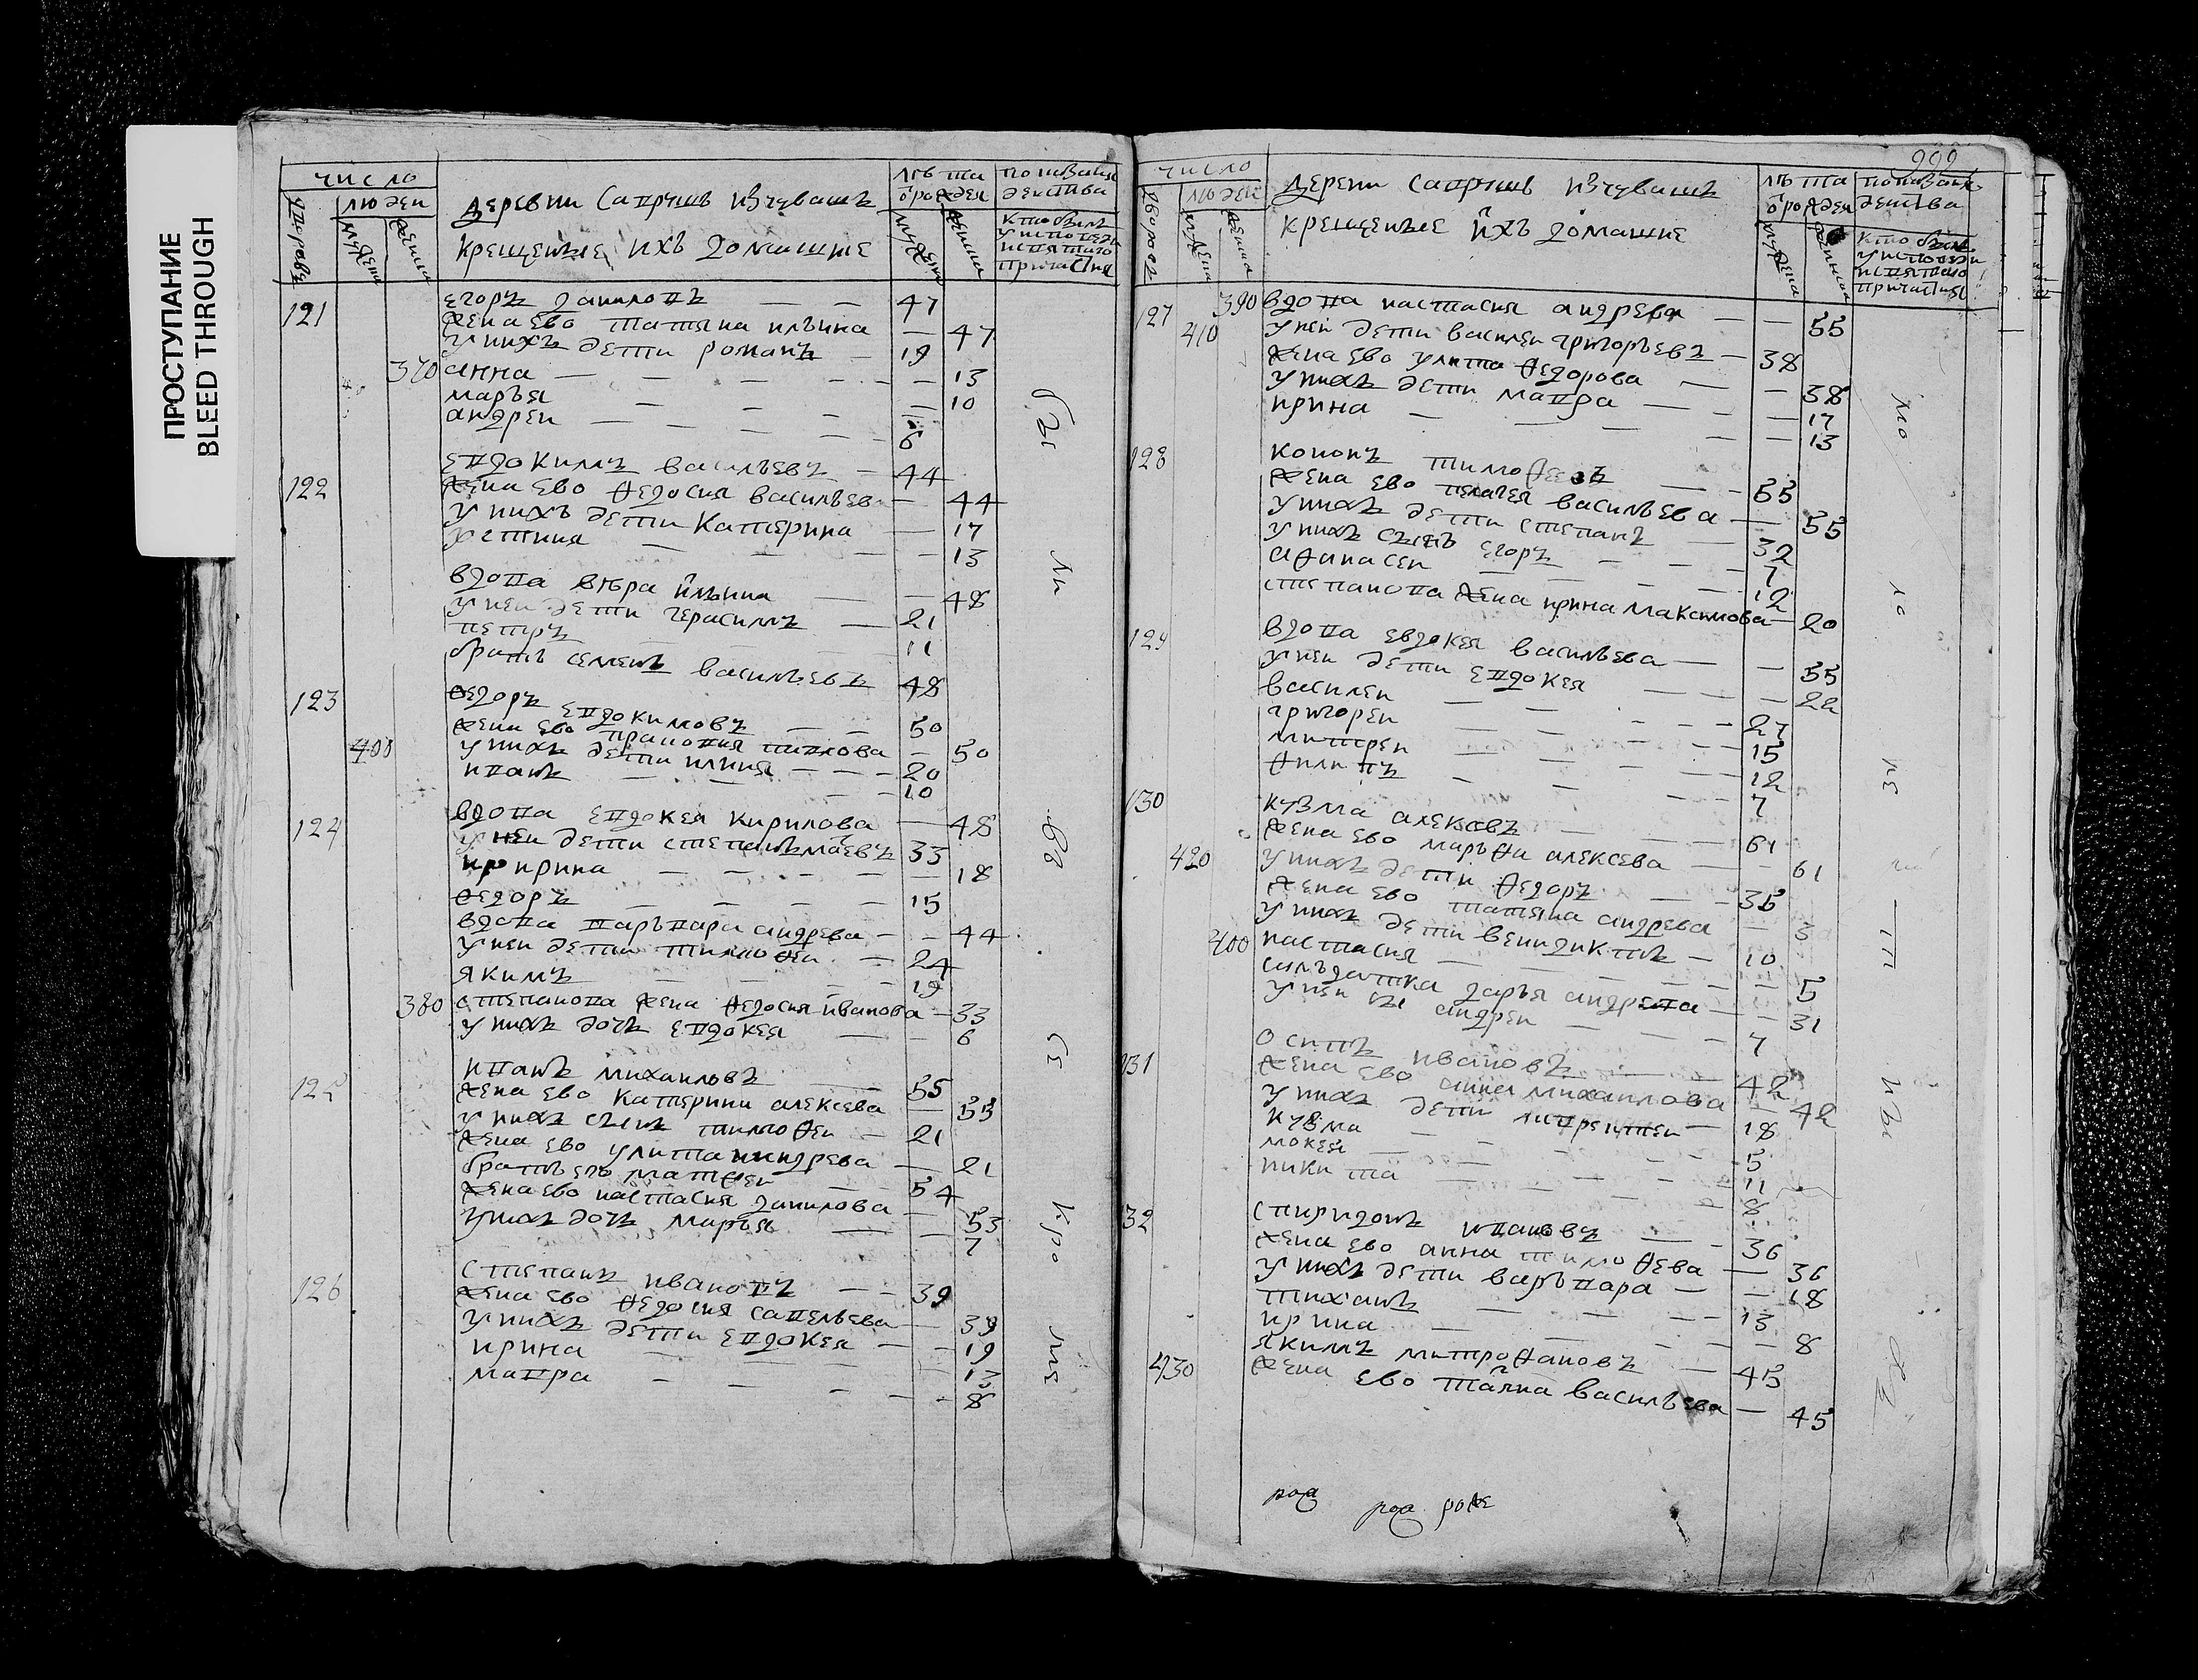 ПРОСТУПАНИЕ
BLEED THROUGH
число
людеи
деревни Сапрышъ изчувашъ
крещеные ихъ домашние
лѣта
ѿрождея
показания
деиства
кто былъ
121 егоръ даниловъ — — 47
жена ево татьяна ильина — 47
у нихъ дети романъ — 19
370 анна — 13
марья — 10
андреи — 6
122 евдокимъ васильевъ — 44
жена ево ѳедосия васильев — 44
у нихъ дети катерина — 17
устиния — 13
вдова вѣра ильина — 48
у неи дети герасимъ — 21
петръ 11
братъ семенъ васильевъ 48
123 ѳедоръ евдокимовъ — 50
жена ево — 50
400 у нихъ дети — 20
иванъ — 10
124 вдова евдокея кирилова — 48
у неи дети степанъ 33
ирина — 18
ѳедоръ — 15
вдова варъвара андрева — 44
у неи дети тимоѳеи — 24
якимъ 19
380 степанова жена ѳедосия иванова — 33
у нихъ дочь евдокея — 6
125 иванъ михаиловъ — 55
жена ево катерина алексева — 55
у нихъ сынъ тимоѳеи — 21
жена ево улита андрева — 21
братъ евъ матѳеи — 54
жена ево настасия данилова — 53
у нихъ дочь марья — 7
126 степанъ ивановъ — 39
жена ево ѳедосия савельева — 39
у нихъ дети евдокея — 19
ирина — 13
мавра — 8
222
число
людеи
дерени сапрышъ изчувашъ
крещеные ихъ домашние
лѣта
ѿрождея
показания
деиства
кто былъ
127 390 вдова настасия андрева — 55
410 у неи дети василеи григорьевъ — 38
жена ево улита ѳедорова — 38
у нихъ дети мавра — 17
ирина — 13
128 кононъ тимоѳеевъ — 55
жена ево пелагея васильева — 55
у нихъ дети степанъ — 32
у нихъ сынъ егоръ — 7
аѳанасеи — 12
степанова жена ирина максимова — 20
129 вдова евдокея васильева — 55
у неи дети евдокея — 22
василеи — 27
григореи — 15
митреи — 12
ѳилипъ — 7
130 кузма алексевъ — 61
жена ево марьѳа алексева — 61
420 у нихъ дети ѳедоръ — 35
жена ево татьяна андрева — 3
у нихъ дети венидиктъ — 10
400 настасия — 5
салъдатка дарья андрева — 31
у неи сы андреи — 7
131 осипъ ивановъ — 42
жена ево анна михаилова — 42
у нихъ дети лаврентеи — 18
кузма — 5
мокеи — 11
никита — 8
32 спиридонъ ивановъ — 36
жена ево анна тимоѳева — 36
у нихъ дети варъвара — 18
тиханъ — 13
ирина — 8
якимъ митроѳановъ — 45
430 жена ево таяна васильева — 45